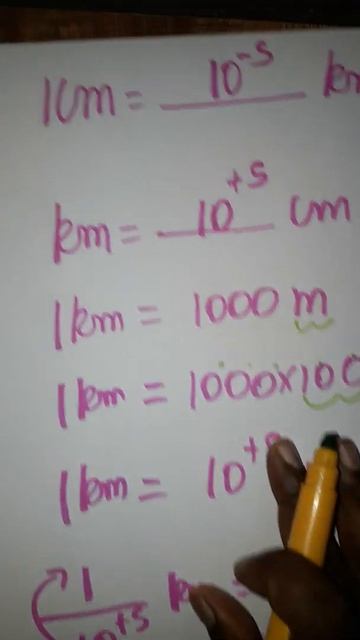 1cm = 10⁻⁵ km
km = 10⁺⁵ cm
1km = 1000 m
1km = 1000×100
1km = 10⁺⁵
1/10⁺⁵ km =